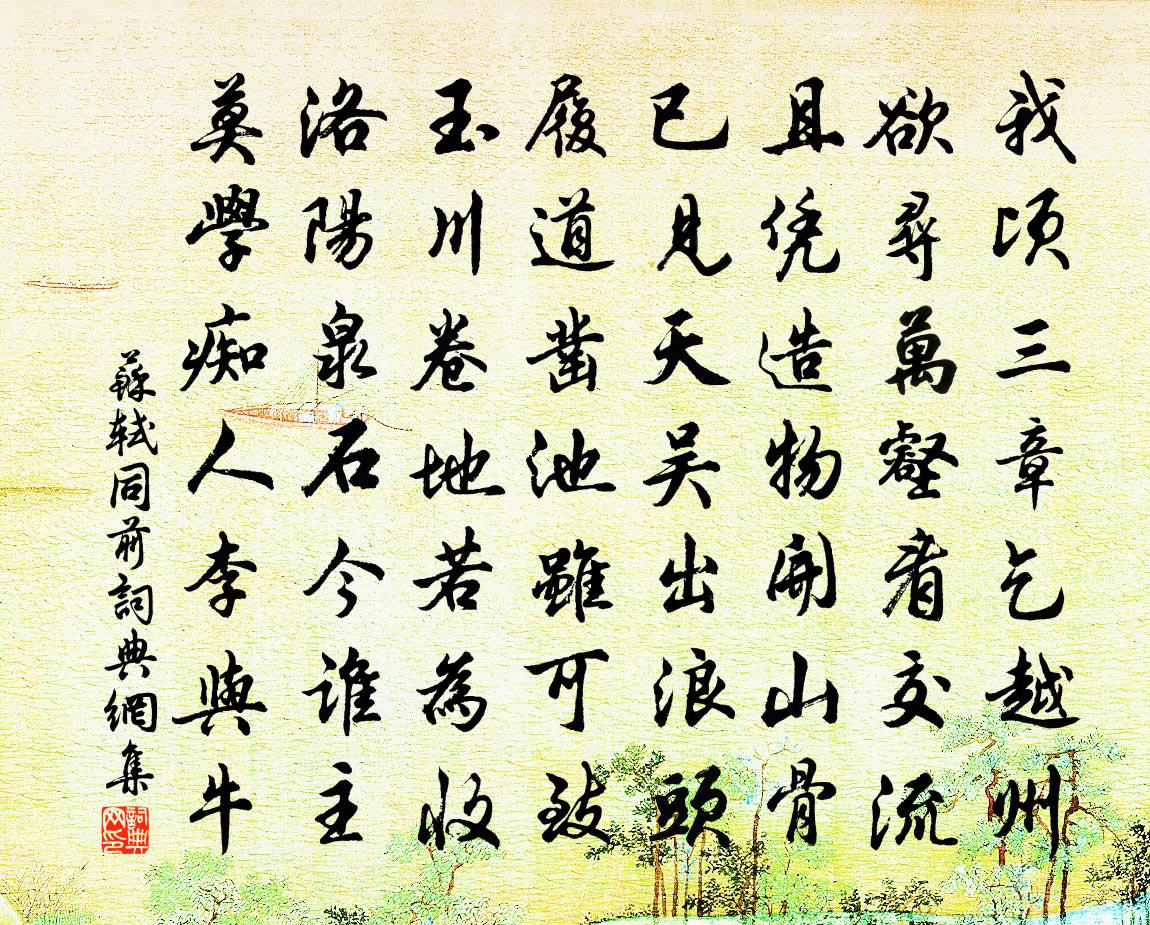 我頃三章乞越州
欲尋萬壑看交流
且凭造物開山骨
已見天吴出浪頭
履道鑿池雖可致
玉川卷地若為收
洛陽泉石今誰主
莫學痴人李與牛
蘇軾同前詞典網集
詞典
网印